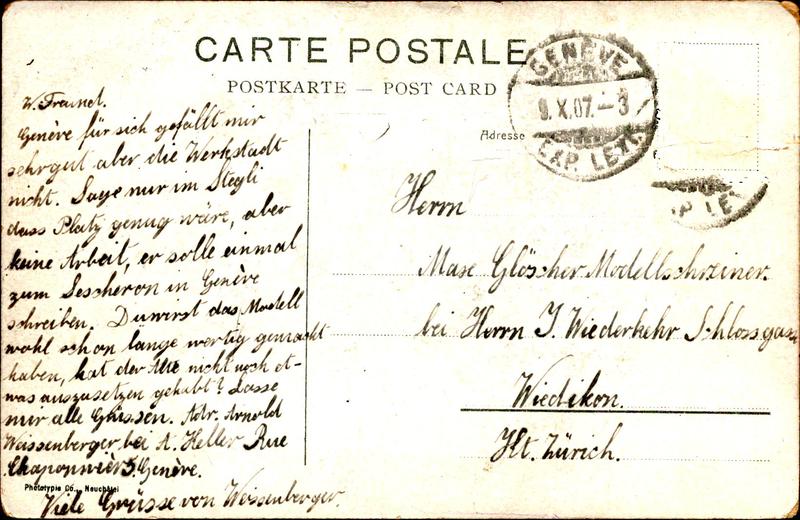 CARTE POSTALE
POSTKARTE — POST CARD
GENÈVE
9.X.07. — 3
EXP. LETT.
Adresse
EXP. LET
W. Freund.
Genève für sich gefällt mir
sehr gut aber die Werkstadt
nicht. Sage nur im Stegli
dass Platz genug wäre, aber
keine Arbeit, er solle einmal
zum Sescheron in Genève
schreiben. Du wirst das Modell
wohl schon lange wertig gemacht
haben, hat der Alte nicht noch et-
was auszusetzen gehabt? Lasse
mir alle Grüssen. Adr. Arnold
Weissenberger bei A. Heller Rue
Chaponnièr 5. Genève.
Viele Grüsse von Weissenberger.
Phototypie Co., Neuchâtel
Herrn
Max Glöscher Modellschreiner.
bei Herrn J. Wiederkehr Schlossgass
Wiedikon.
Kt. Zürich.